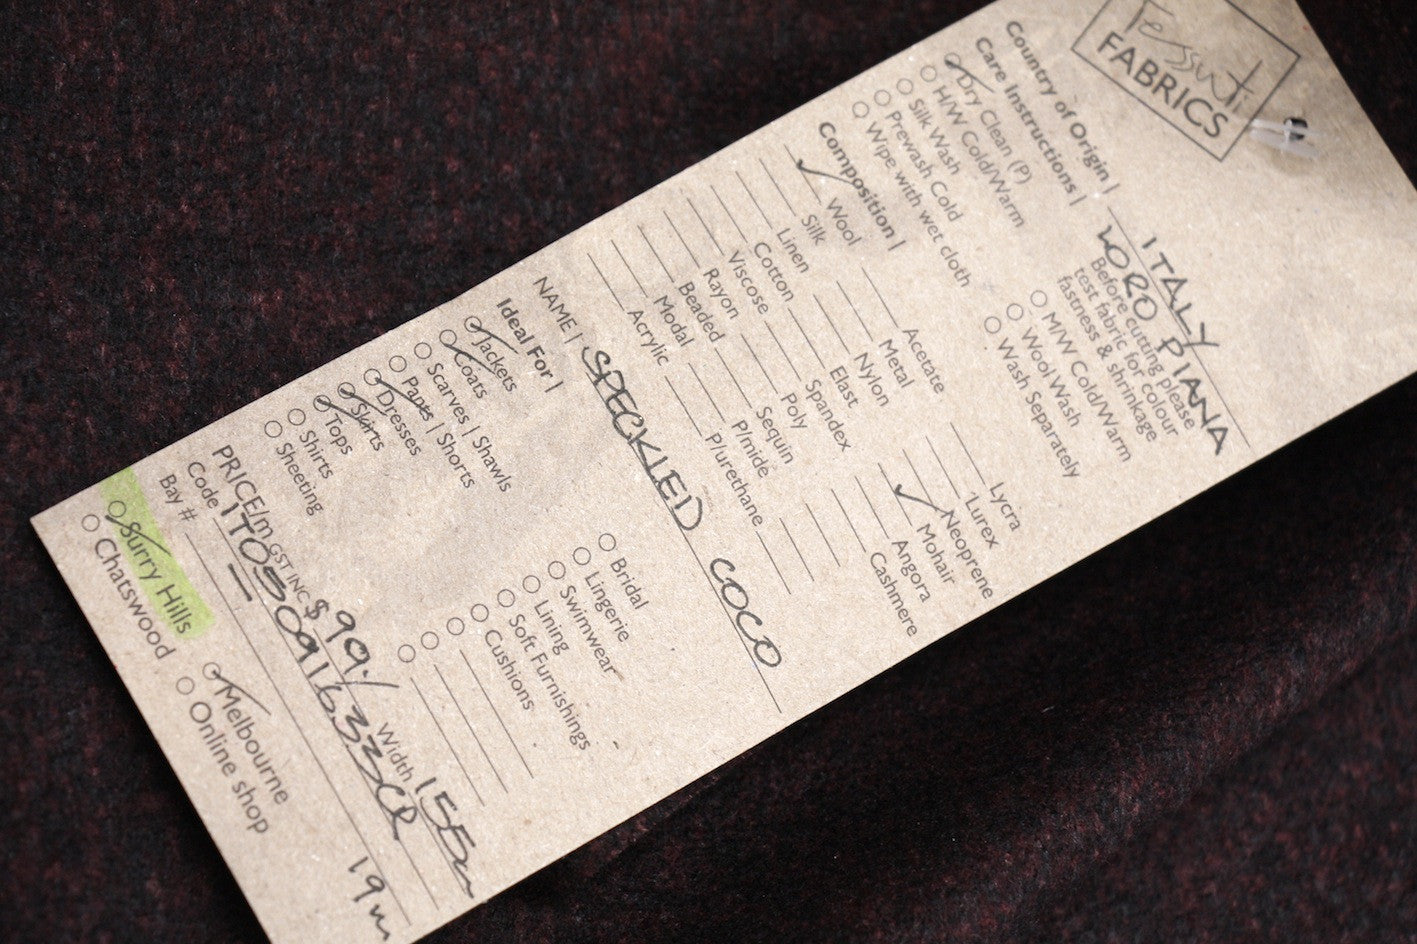 Tessuti
FABRICS
Country of Origin | ITALY
Care Instructions | LORO PIANA
Dry Clean (P)
H/W Cold/Warm
Silk Wash
Prewash Cold
Wipe with wet cloth
Before cutting please
test fabric for colour
fastness & shrinkage
M/W Cold/Warm
Wool Wash
Wash Separately
Composition |
Wool
Silk
Linen
Cotton
Viscose
Rayon
Beaded
Modal
Acrylic
Acetate
Metal
Nylon
Elast
Spandex
Poly
Sequin
P/mide
P/urethane
Lycra
Lurex
Neoprene
Mohair
Angora
Cashmere
NAME | SPECKLED COCO
Ideal For |
Jackets
Coats
Scarves | Shawls
Pants | Shorts
Dresses
Skirts
Tops
Shirts
Sheeting
Bridal
Lingerie
Swimwear
Lining
Soft Furnishings
Cushions
PRICE/m GST INC $99./ Width 155
Code
Bay #
19m
Surry Hills
Chatswood
Melbourne
Online shop